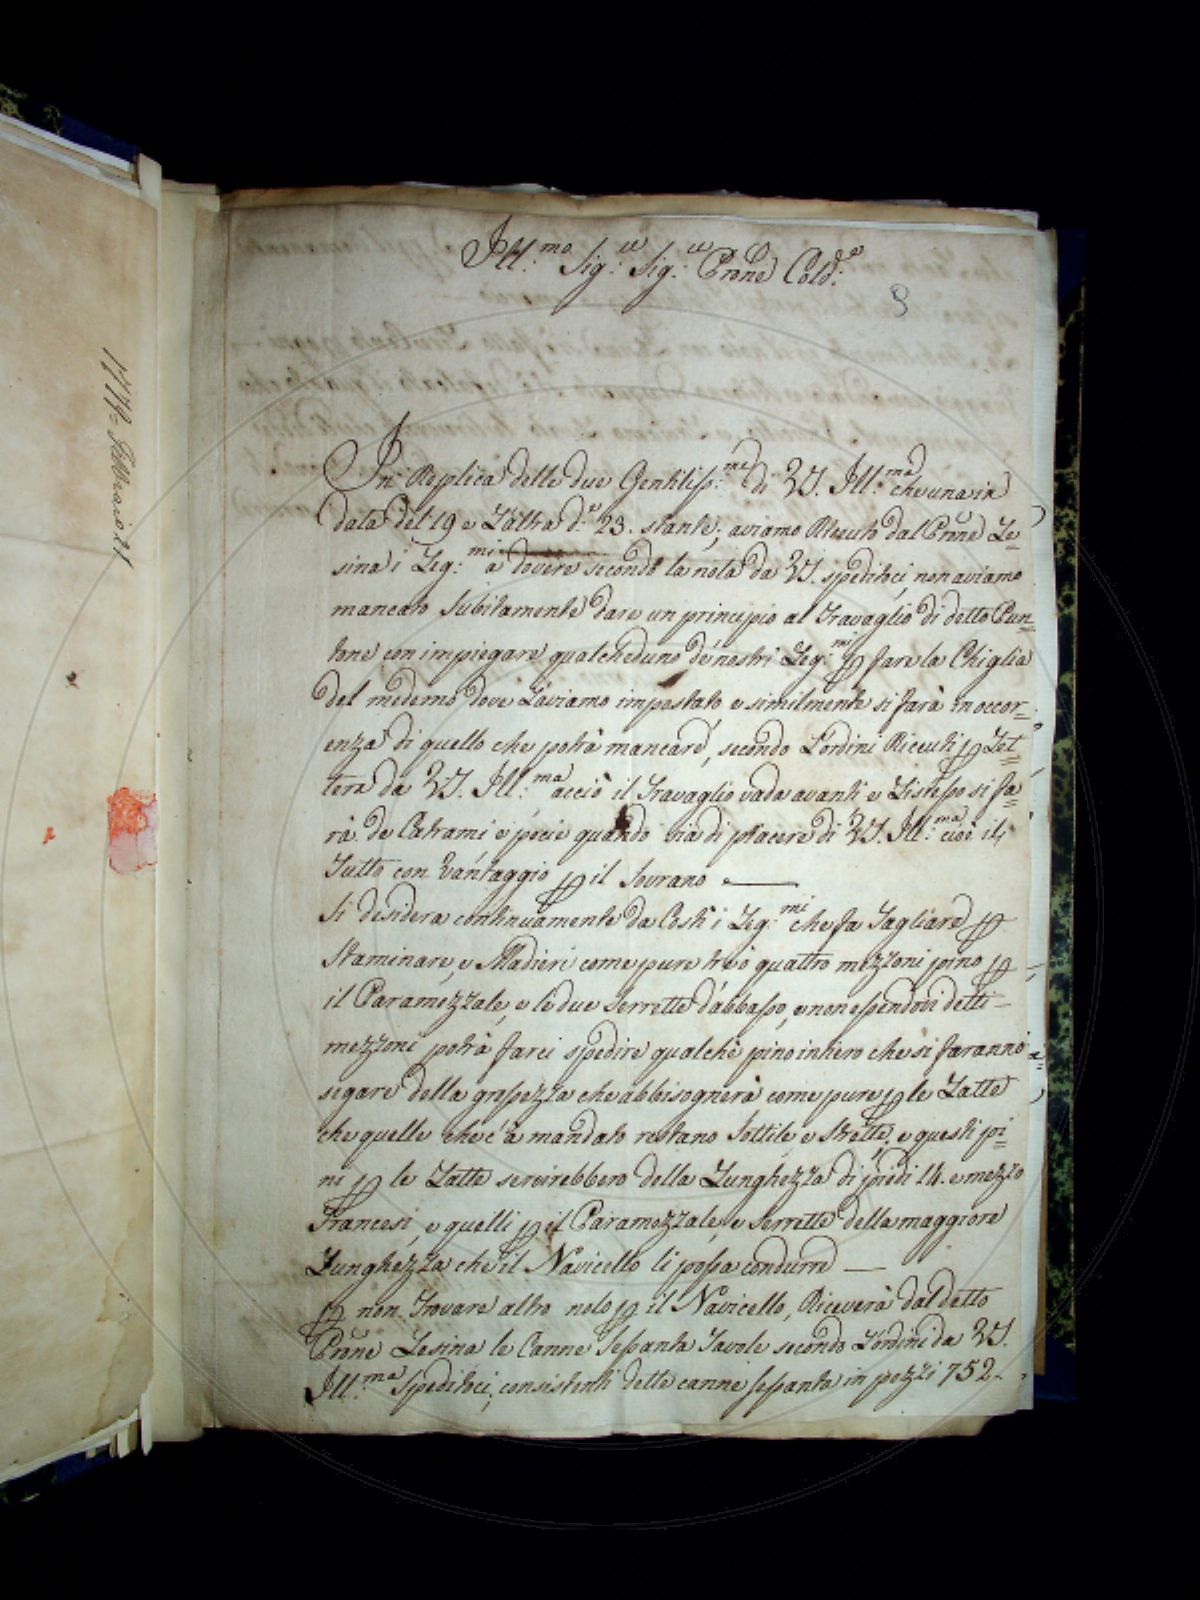 Ill.mo Sig.re Sig.re Prone Cold.o
8
1779 Febbraio 21
In Replica delle due Gentiliss.me di VS. Ill.ma che una in
data del 19 e L'altra d.o 23. stante, aviamo Riceuto dal Prone Le=
sina i Leg.mi a dovere secondo la nota da VS. speditoci, non aviamo
mancato Subitamente dare un principio al Travaglio di detto Pon=
tone con impiegare qualcheduno de nostri Leg.mi p fare la Chiglia
del medemo dove L'aviamo impostato e similmente si farà in occor=
enza di quello che potrà mancare, secondo L'ordini Riceuti p Let=
tera da VS. Ill.ma acciò il Travaglio vada avanti e L'istesso si fa=
rà de Catrami e pecie quando sia di piacere di VS. Ill.ma cioè il
Tutto con Vantaggio p il Sovrano
Si desidera continuamente da Costi i Leg.mi che fa Tagliare p
Staminare, e Madieri come pure tre o quattro mezzoni pino p
il Paramezzale, e le due Serrette d'abbasso, e non essendovi detti
mezzoni potrà farci spedire qualche pino intiero che si faranno
segare della grossezza che abbisognerà come pure p le Latte
che quelle che c'à mandato restano Sottile e Strette, e questi pi=
ni p le Latte servirebbero della Lunghezza di piedi 14. e mezzo
Francesi, e quelli p il Paramezzale, e Serrette della maggiore
Lunghezza che il Navicello li possa condurre
p non Trovare altro nolo p il Navicello, Riceverà dal detto
Prone Lesina le Canne Sessanta Tavole secondo L'ordini da VS.
Ill.ma Speditoci, consistenti dette canne sessanta in pezzi 752.